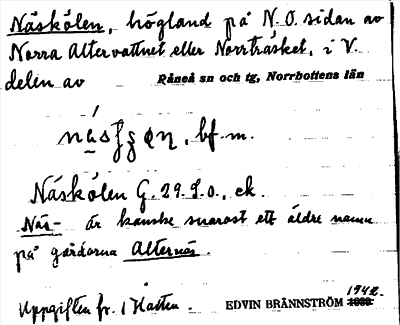 Näskölen, högland på N.O. sidan av
Norra Altervattnet eller Norrträsket, i V.
delen av Råneå sn och tg, Norrbottens län
bf. m.
Näskölen G. 29. S. o., ek.
Näs- är kanske snarast ett äldre namn
på gårdarna Alternäs.
Uppgiften fr. 1 Hasten.
EDVIN BRÄNNSTRÖM 1942.